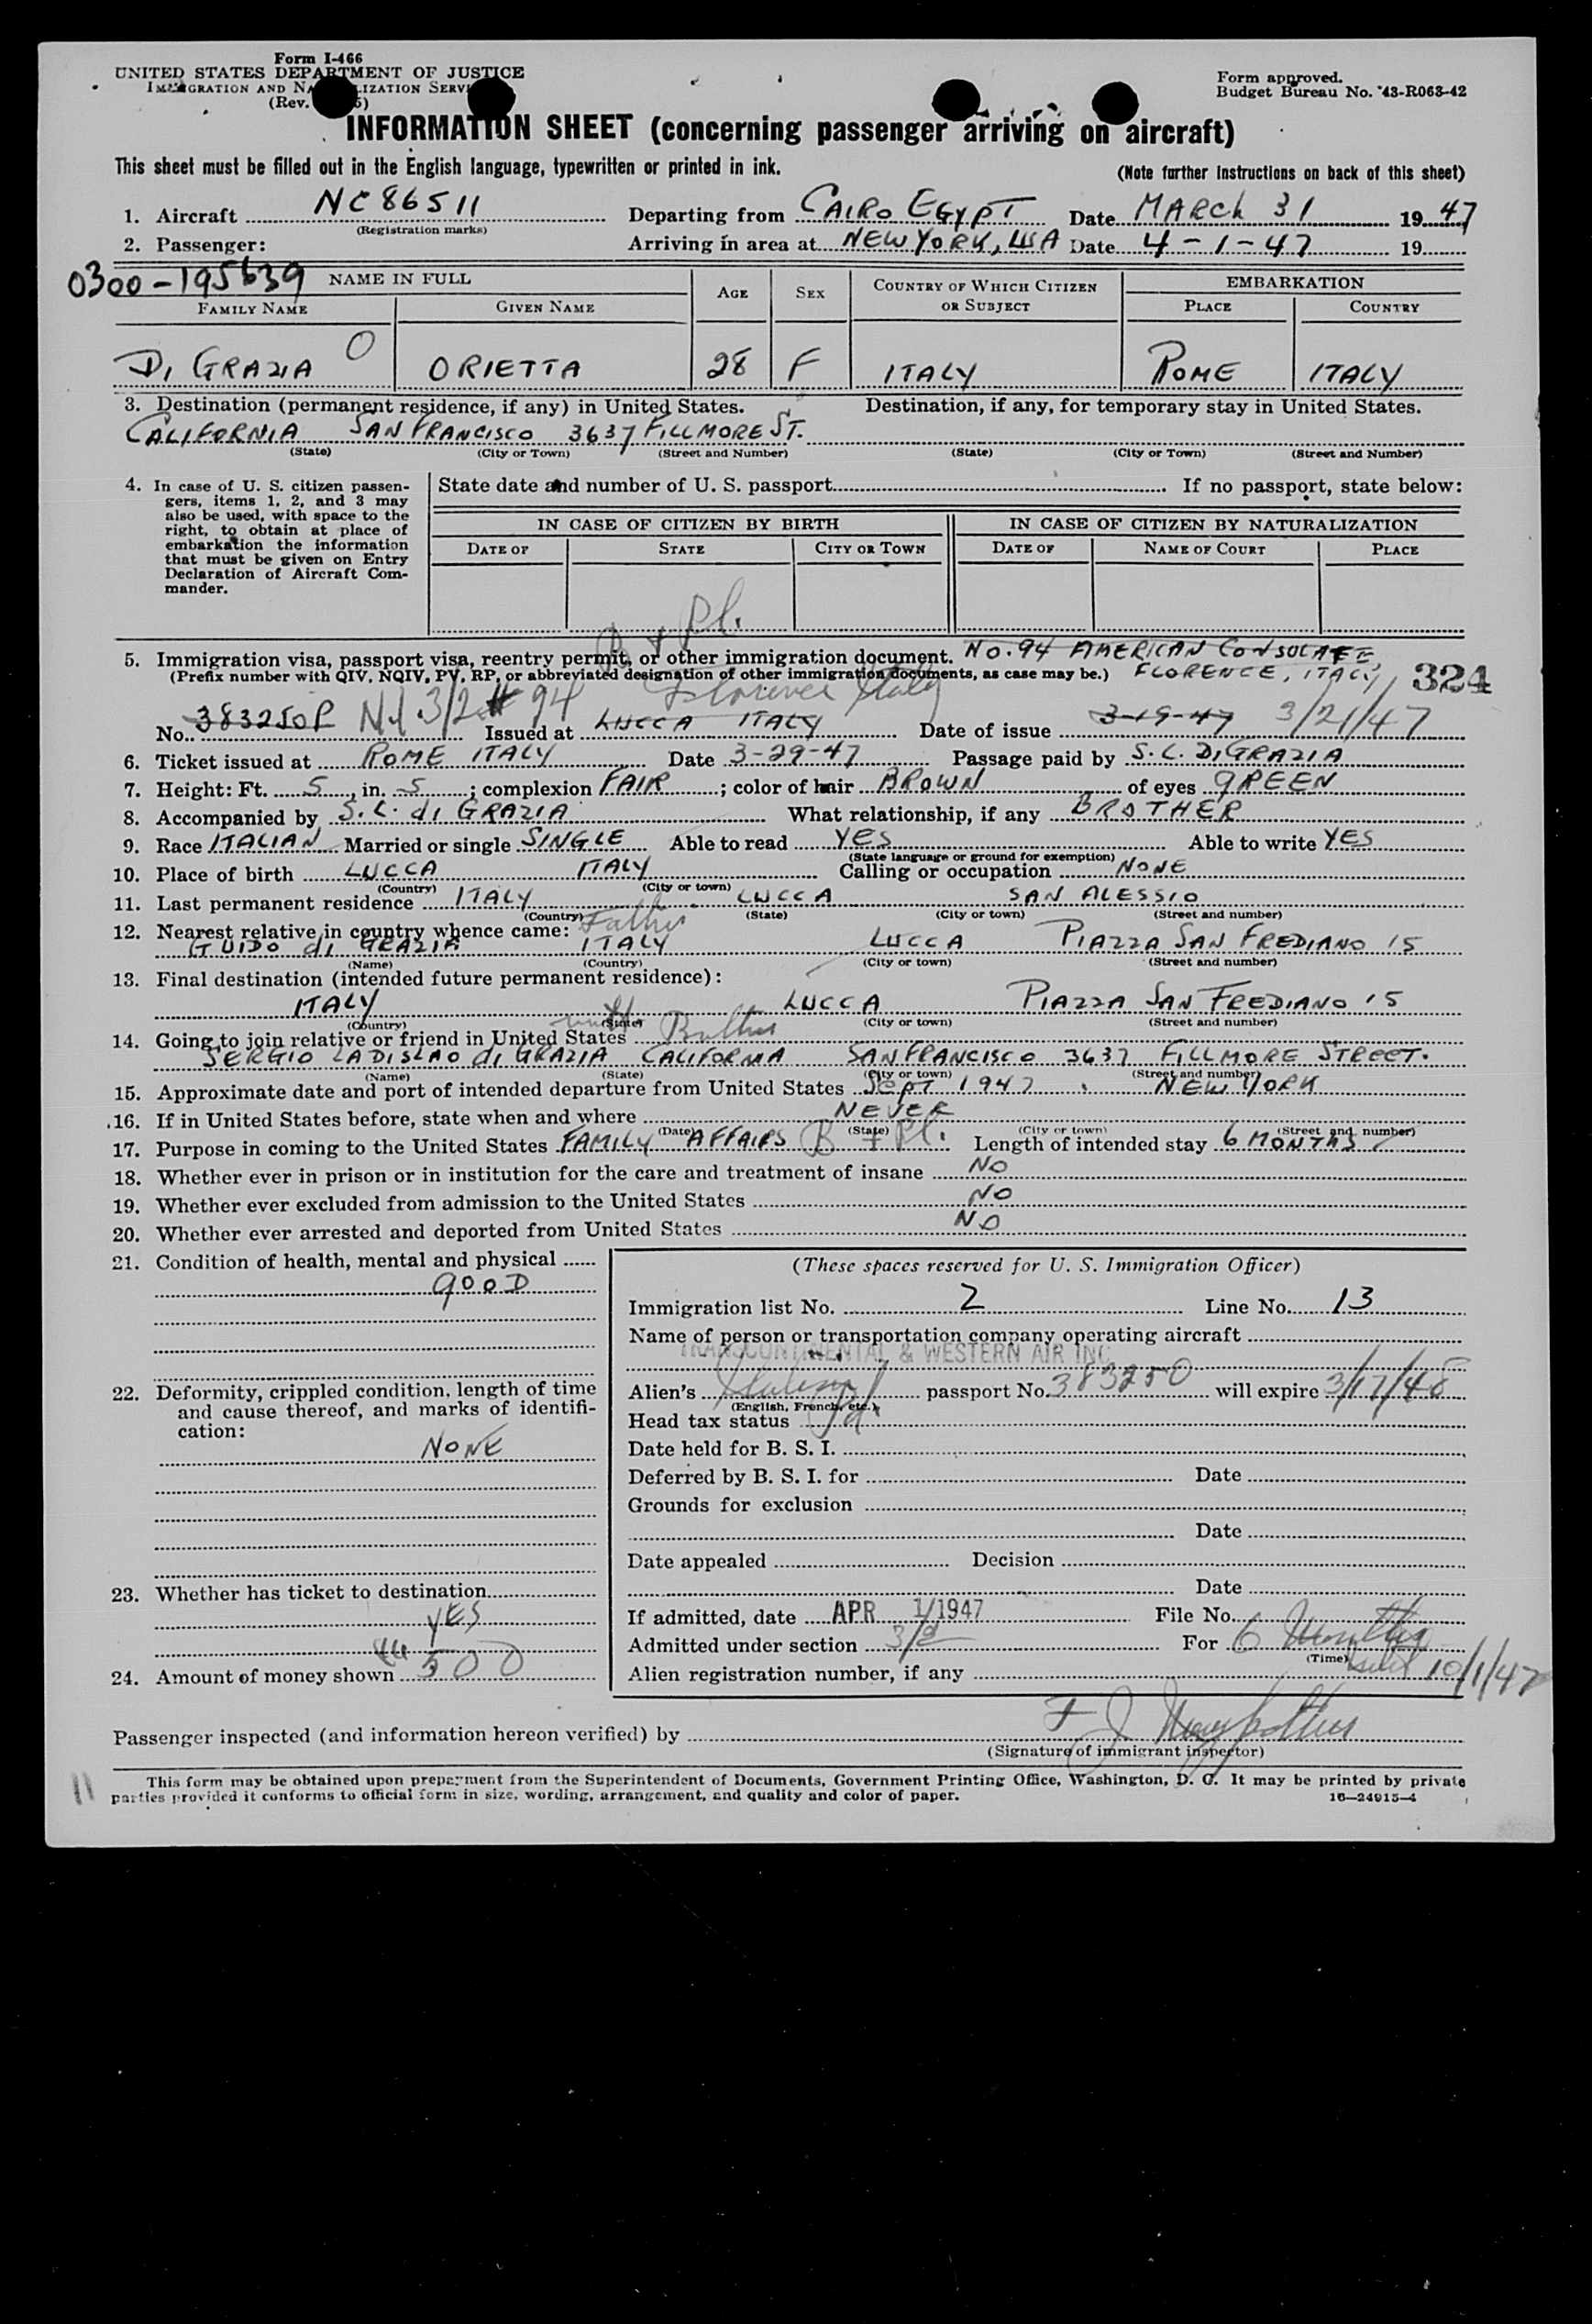 Form I-466
UNITED STATES DEPARTMENT OF JUSTICE
IMMIGRATION AND NATURALIZATION SERVICE
(Rev.
Form approved.
Budget Bureau No. 43-R063-42
INFORMATION SHEET (concerning passenger arriving on aircraft)
This sheet must be filled out in the English language, typewritten or printed in ink. (Note further instructions on back of this sheet)
1. Aircraft NC 86511 Departing from CAIRO EGYPT Date MARCH 31 1947
(Registration marks)
2. Passenger: Arriving in area at NEW YORK, USA Date 4-1-47 19
0300-195639
NAME IN FULL AGE SEX COUNTRY OF WHICH CITIZEN OR SUBJECT EMBARKATION
FAMILY NAME GIVEN NAME PLACE COUNTRY
DI GRAZIA O ORIETTA 28 F ITALY ROME ITALY
3. Destination (permanent residence, if any) in United States. Destination, if any, for temporary stay in United States.
CALIFORNIA SAN FRANCISCO 3637 FILLMORE ST.
(State) (City or Town) (Street and Number) (State) (City or Town) (Street and Number)
4. In case of U. S. citizen passengers, items 1, 2, and 3 may also be used, with space to the right, to obtain at place of embarkation the information that must be given on Entry Declaration of Aircraft Commander.
State date and number of U. S. passport If no passport, state below:
IN CASE OF CITIZEN BY BIRTH IN CASE OF CITIZEN BY NATURALIZATION
DATE OF STATE CITY OR TOWN DATE OF NAME OF COURT PLACE
B & Pl.
5. Immigration visa, passport visa, reentry permit, or other immigration document. NO. 94 AMERICAN CONSULATE
(Prefix number with QIV, NQIV, PV, RP, or abbreviated designation of other immigration documents, as case may be.) FLORENCE, ITALY
324
Florence Italy
No. 383250P N.I. 3/2 # 94 Issued at LUCCA ITALY Date of issue 3-19-47 3/21/47
6. Ticket issued at ROME ITALY Date 3-29-47 Passage paid by S.L. DI GRAZIA
7. Height: Ft. 5, in. 5; complexion FAIR; color of hair BROWN of eyes GREEN
8. Accompanied by S.L. di GRAZIA What relationship, if any BROTHER
9. Race ITALIAN Married or single SINGLE Able to read YES Able to write YES
(State language or ground for exemption)
10. Place of birth LUCCA ITALY Calling or occupation NONE
(Country) (City or town)
11. Last permanent residence ITALY LUCCA SAN ALESSIO
(Country) (State) (City or town) (Street and number)
12. Nearest relative in country whence came: Father
GUIDO di GRAZIA ITALY LUCCA PIAZZA SAN FREDIANO 15
(Name) (Country) (City or town) (Street and number)
13. Final destination (intended future permanent residence):
ITALY LUCCA PIAZZA SAN FREDIANO 15
(Country) (State) (City or town) (Street and number)
14. Going to join relative or friend in United States with Brother
SERGIO LADISLAO di GRAZIA CALIFORNIA SAN FRANCISCO 3637 FILLMORE STREET.
(Name) (State) (City or town) (Street and number)
15. Approximate date and port of intended departure from United States SEPT 1947 NEW YORK
16. If in United States before, state when and where NEVER
(Date) (State) (City or town) (Street and number)
17. Purpose in coming to the United States FAMILY AFFAIRS B & Pl. Length of intended stay 6 MONTHS
18. Whether ever in prison or in institution for the care and treatment of insane NO
19. Whether ever excluded from admission to the United States NO
20. Whether ever arrested and deported from United States NO
21. Condition of health, mental and physical
GOOD
22. Deformity, crippled condition, length of time and cause thereof, and marks of identification:
NONE
23. Whether has ticket to destination
YES
24. Amount of money shown 500
(These spaces reserved for U. S. Immigration Officer)
Immigration list No. 2 Line No. 13
Name of person or transportation company operating aircraft
TRANSCONTINENTAL & WESTERN AIR INC
Alien's Italian passport No. 383250 will expire 3/17/48
(English, French, etc.)
Head tax status Pd.
Date held for B. S. I.
Deferred by B. S. I. for Date
Grounds for exclusion
Date
Date appealed Decision
Date
If admitted, date APR 1/1947 File No.
Admitted under section 3/2 For 6 Months
(Time)
Alien registration number, if any 10/1/47
Passenger inspected (and information hereon verified) by F J
(Signature of immigrant inspector)
This form may be obtained upon prepayment from the Superintendent of Documents, Government Printing Office, Washington, D. C. It may be printed by private
parties provided it conforms to official form in size, wording, arrangement, and quality and color of paper. 16—24915-4
11